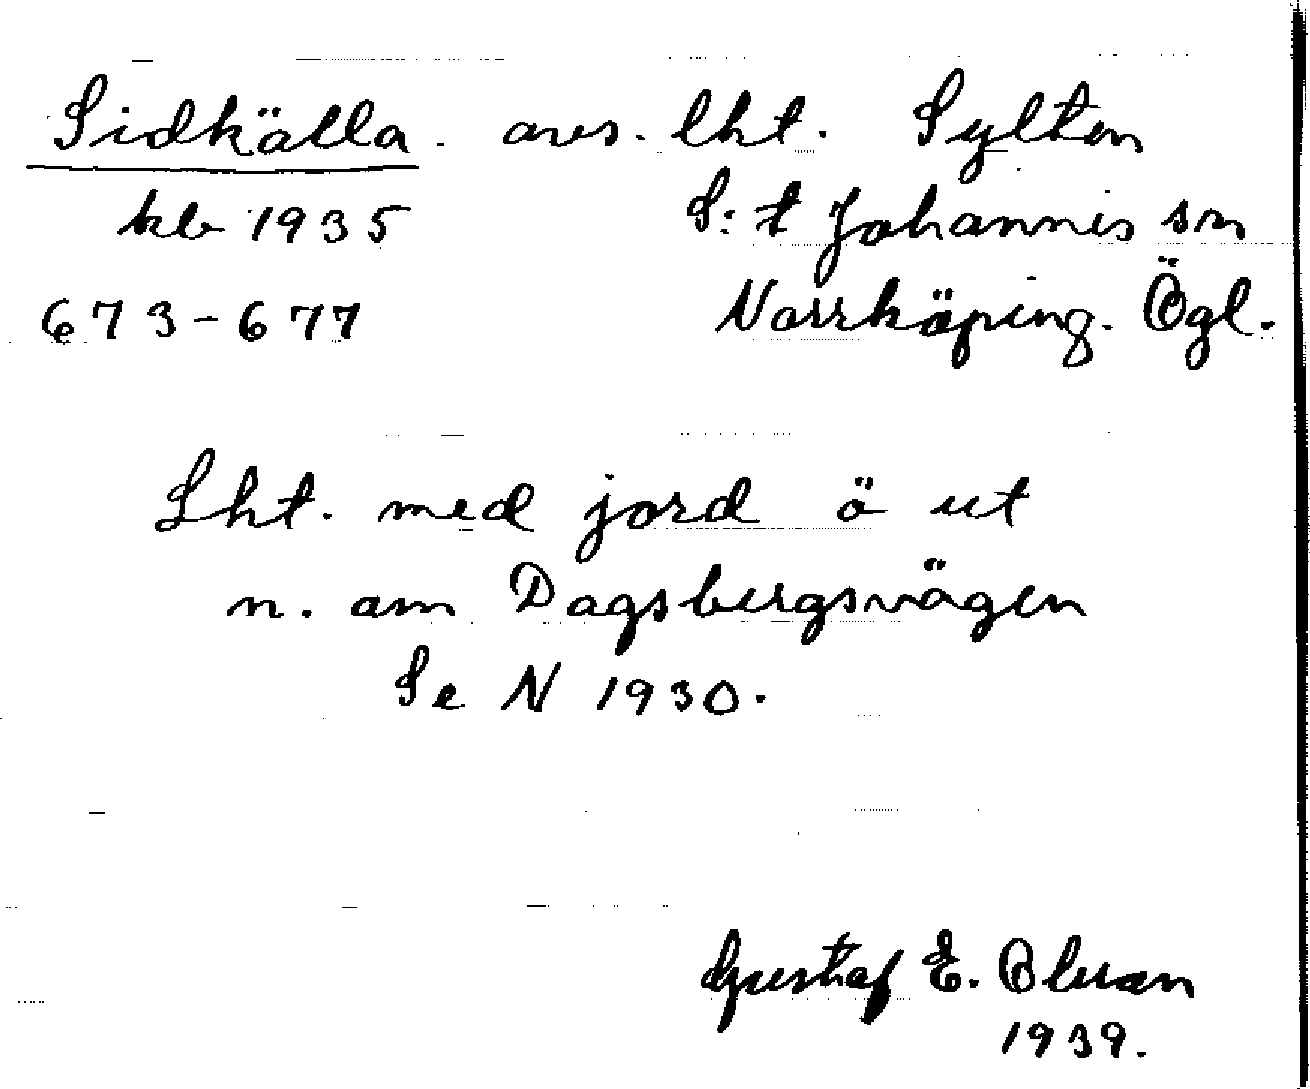 Sidkälla. avs. lht. Sylten
klb 1935 S:t Johannis sn
673-677 Norrköping. Ögl.
Lht. med jord ö ut
n. om Dagsbergsvägen
Se N 1930.
Gustaf E. Olsson
1939.